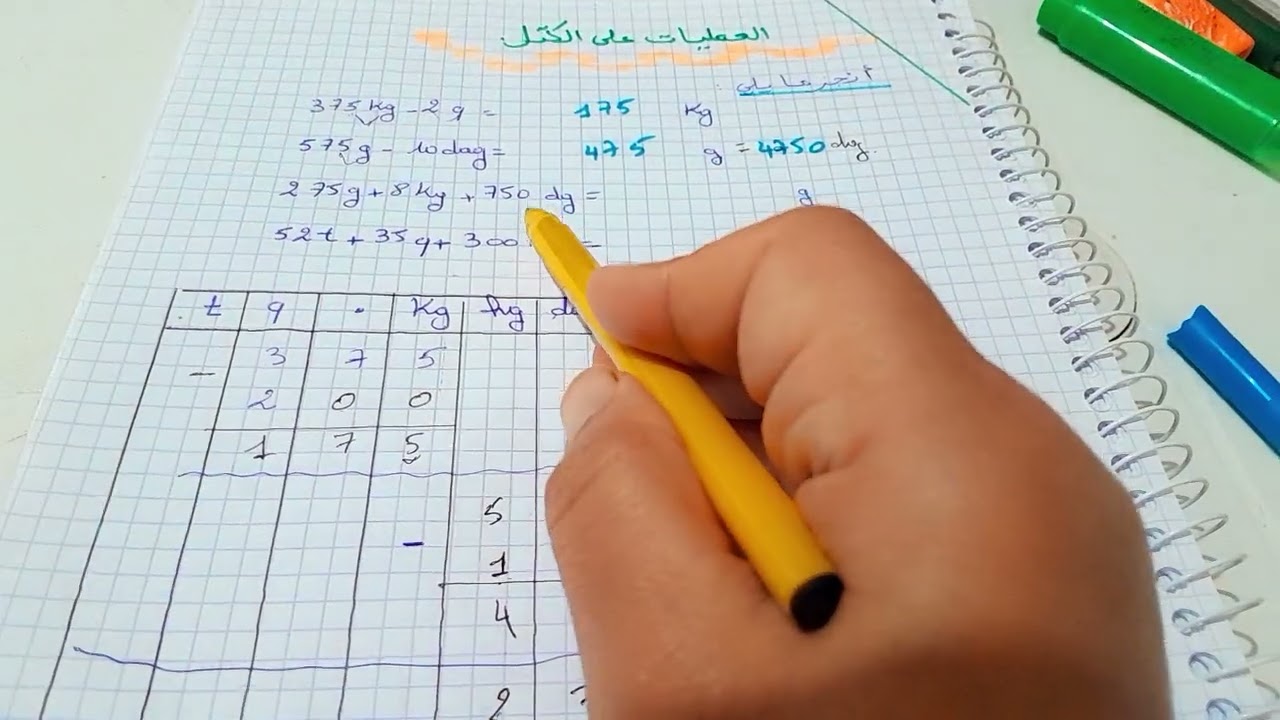 العمليات على الكتل
أنجز ما يلي
375 Kg - 2 q = 175 Kg
575g - 10 dag = 475 g = 4750 dg.
275g + 8 Kg + 750 dg = g
52t + 35 q + 300 =
t q . Kg hg
- 3 7 5
2 0 0
1 7 5
5
- 1
4
2